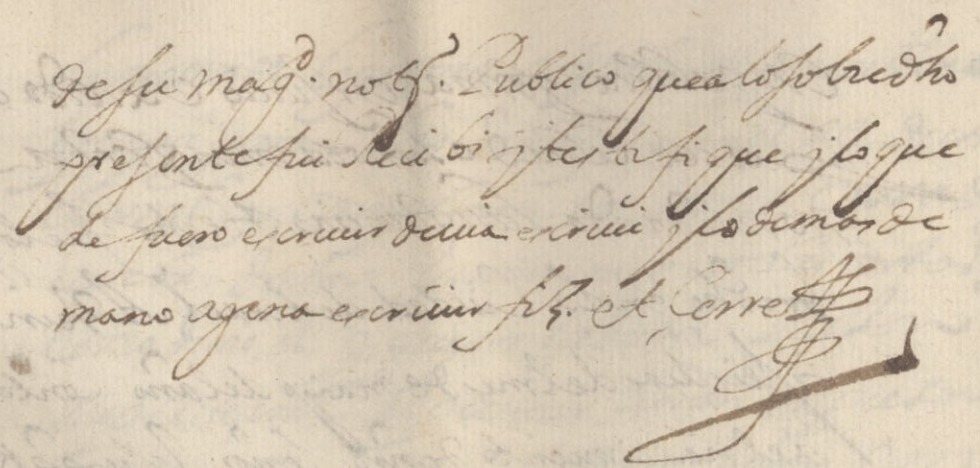 de su magd. notº. Publico que a lo sobredho
presente fui Recibi y testifique y lo que
de fuero escriuir deuia escriui y lo demas de
mano agena escriuir fiz. et Cerre